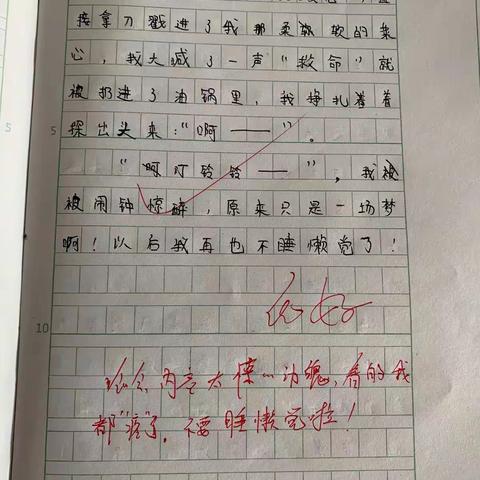 接拿刀戳进了我那柔软软的
心，我大喊了一声“救命”就
5 5 被扔进了油锅里，我挣扎着着
探出头来：“啊——”。
“啊叮铃铃——”，我被
被闹钟惊醒，原来只是一场梦
啊！以后我再也不睡懒觉了！
10
内容太惊心动魄，看的我
都“疼”了，不要睡懒觉啦！